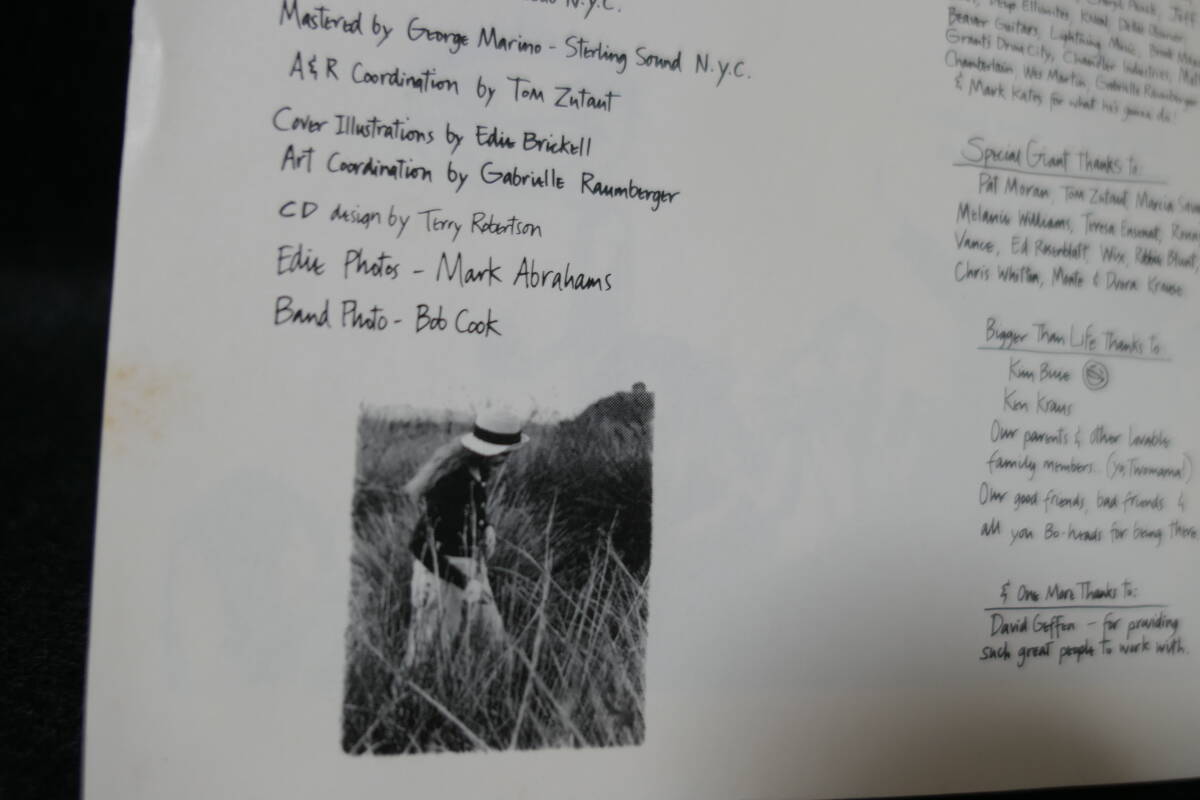 N.Y.C.
Mastered by George Marino - Sterling Sound N.Y.C.
A & R Coordination by Tom Zutaut
Cover Illustrations by Edie Brickell
Art Coordination by Gabrielle Raumberger
CD design by Terry Robertson
Edie Photos - Mark Abrahams
Band Photo - Bob Cook
Beaver Guitars, Lightning Music,
Grants Drum City, Chandler Industries,
Chamberlain, Wes Martin, Gabrielle Raumberger
& Mark Kates for what he's gonna do!
Special Giant Thanks to:
Pat Moran, Tom Zutaut, Marcia
Melanie Williams, Teresa Ensenat,
Vance, Ed Rosenblatt, Wix, Robbie Blunt,
Chris Whitten, Monte & Dvora Krause
Bigger Than Life Thanks to:
Kim Buie
Ken Kraus
Our parents & other lovable
family members.. (yo, Twomama!)
Our good friends, bad friends &
all you Bo-heads for being there
& One More Thanks to:
David Geffen - for providing
such great people to work with.